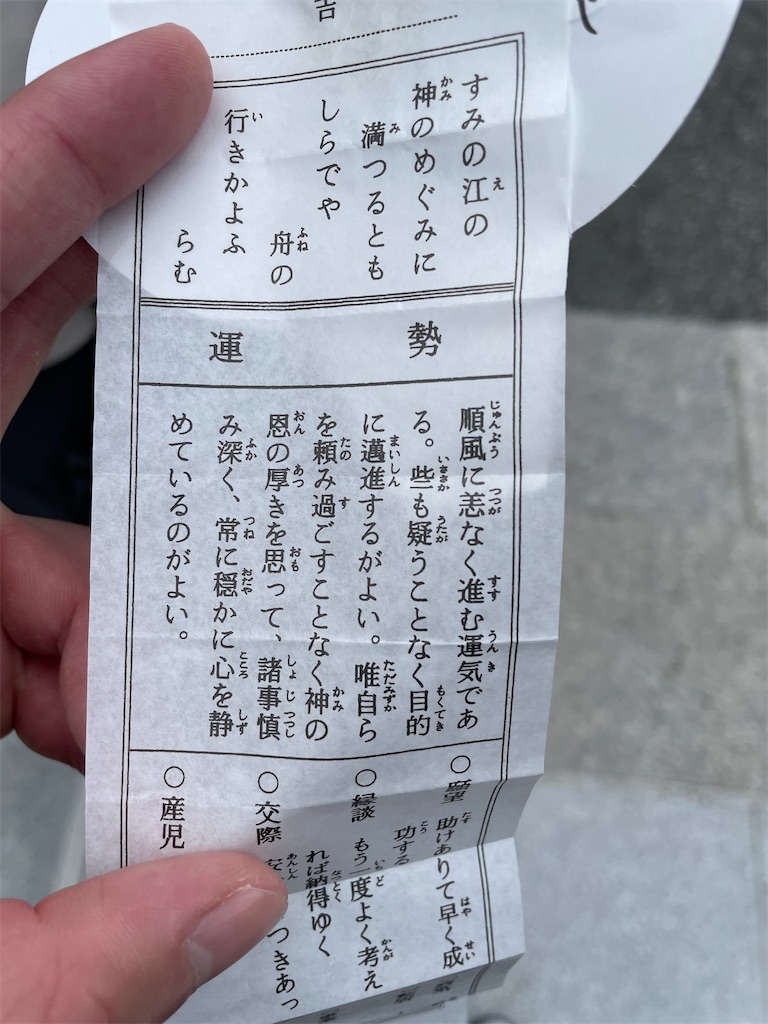 吉
すみの江の
神のめぐみに
満つるとも
しらでや
舟の
行きかよふ
らむ
運勢
順風に恙なく進む運気であ
る。些も疑うことなく目的
に邁進するがよい。唯自ら
を頼み過ごすことなく神の
恩の厚きを思って、諸事慎
み深く、常に穏かに心を静
めているのがよい。
○願望 助けありて早く成
功する
○縁談 もう一度よく考え
れば納得ゆく
○交際
つきあっ
○産児